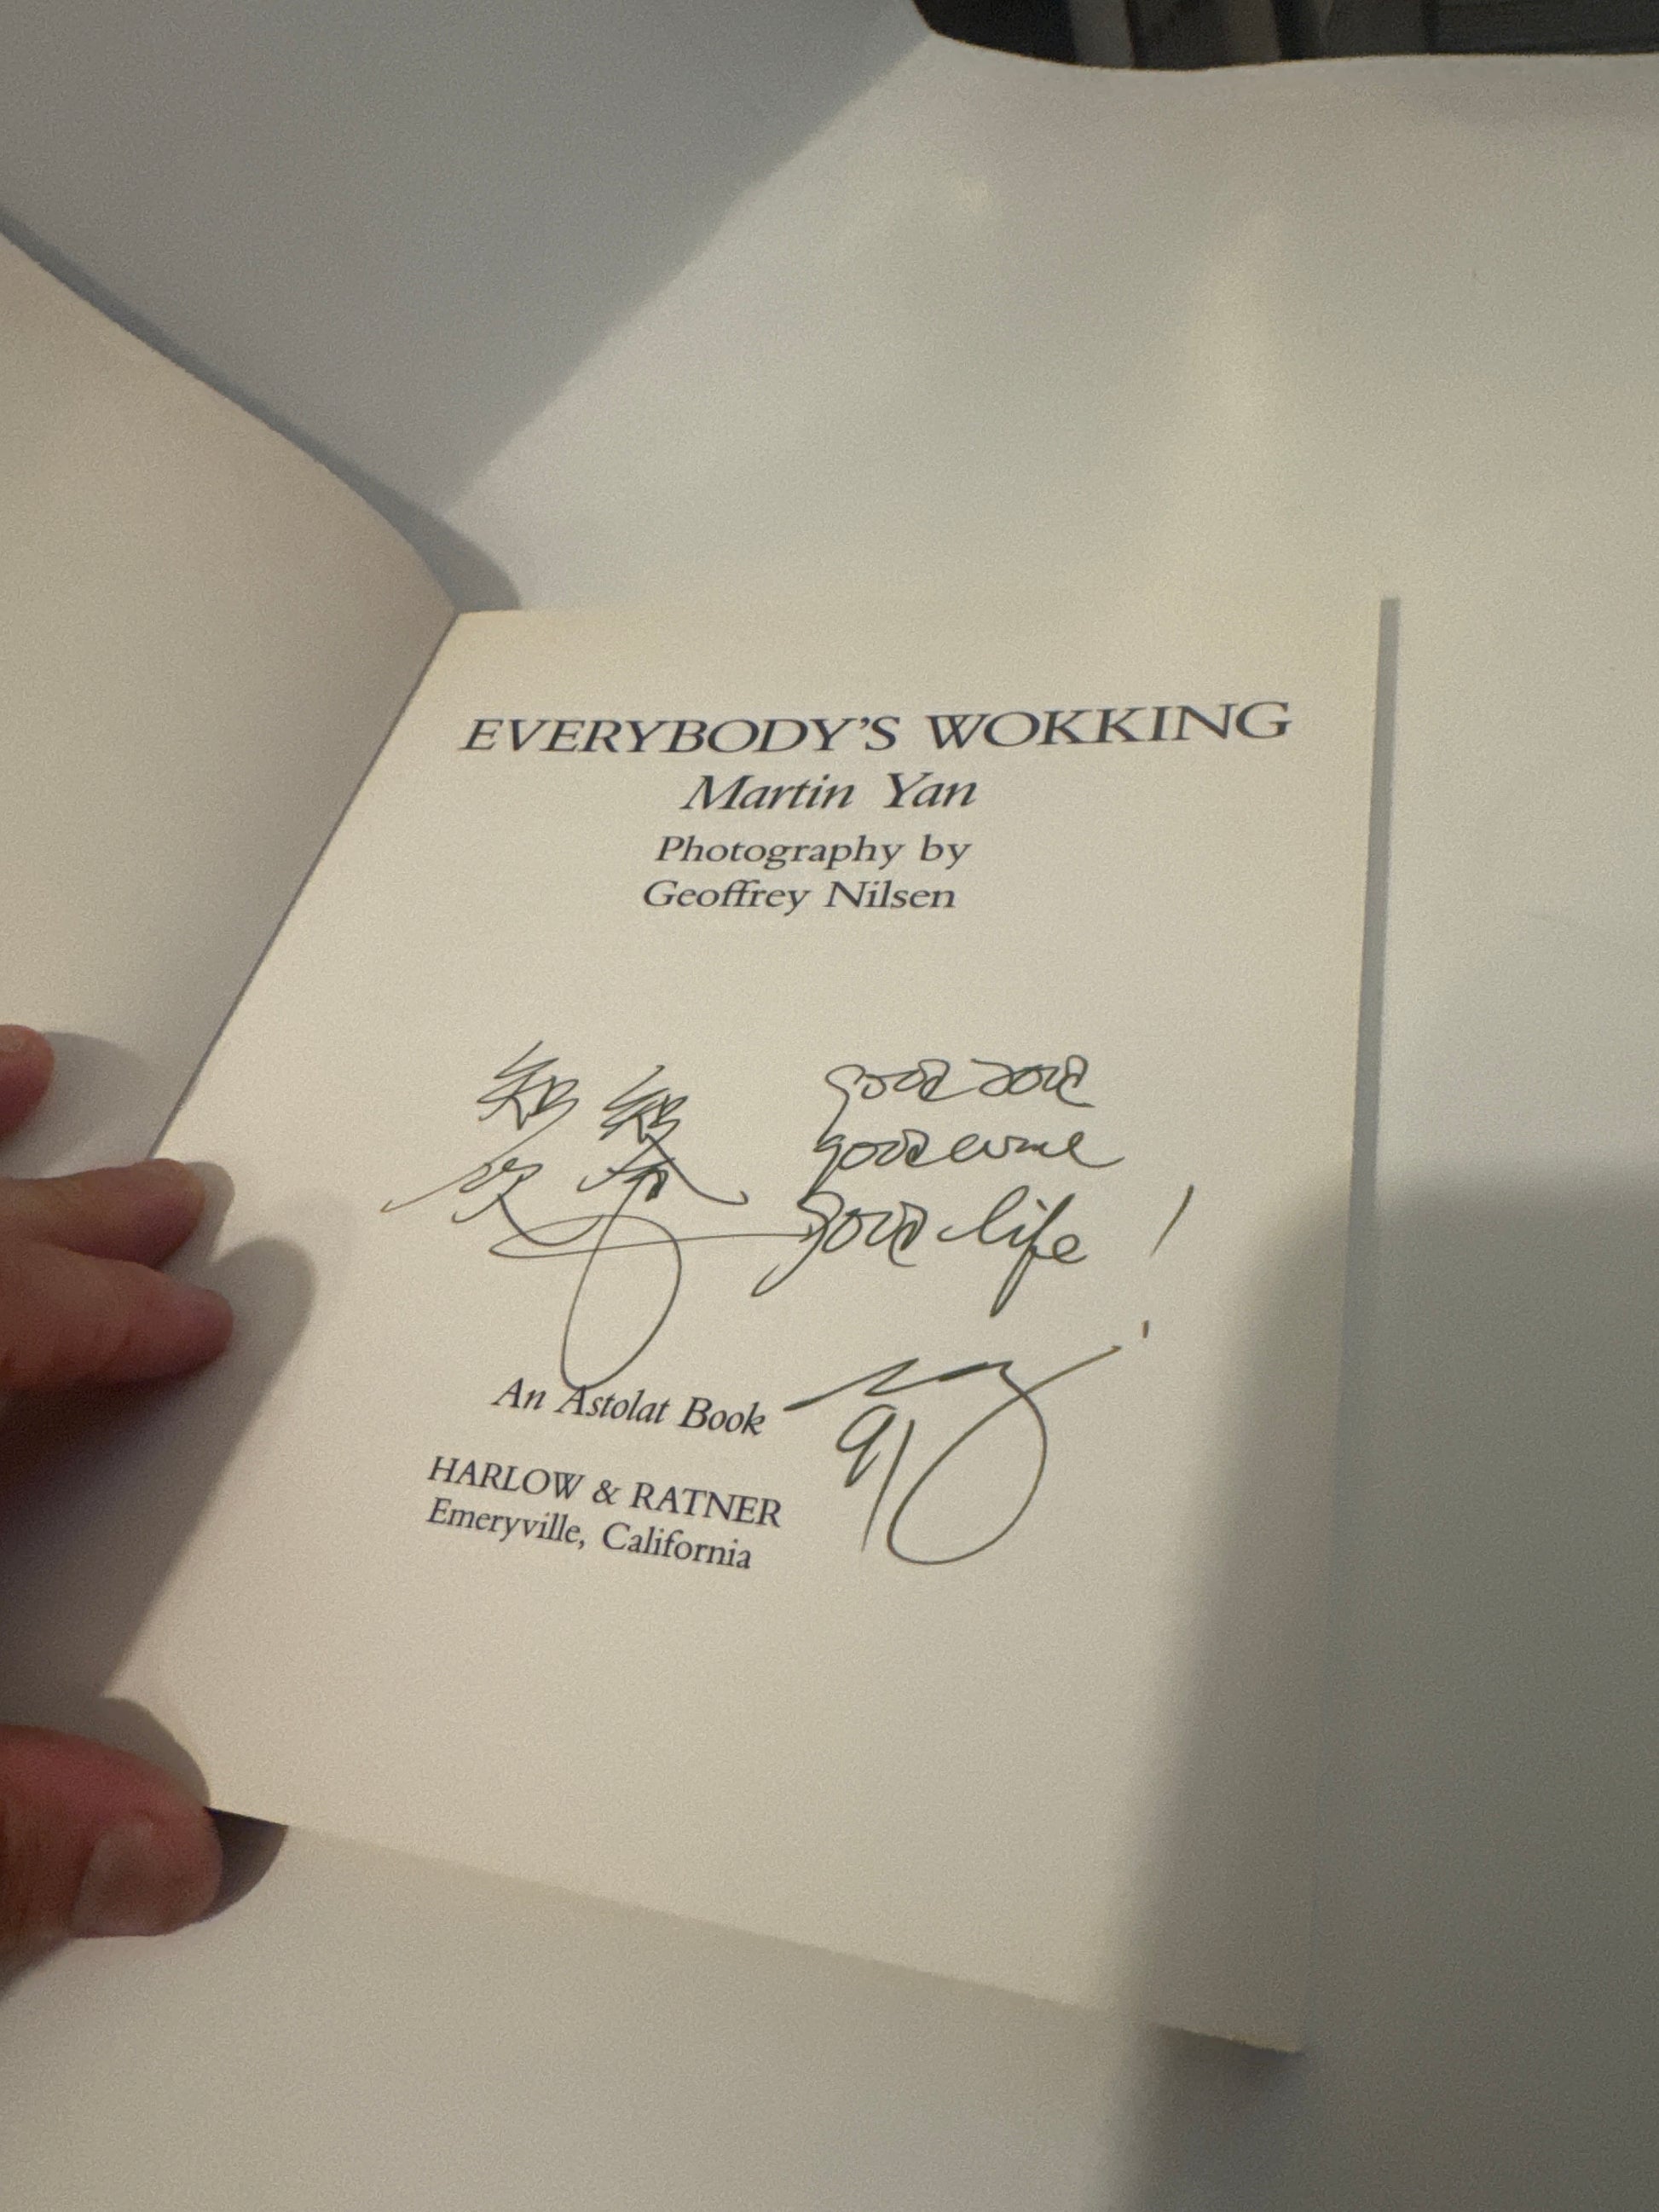 EVERYBODY'S WOKKING
Martin Yan
Photography by
Geoffrey Nilsen
good food
good wine
good life !
An Astolat Book
91
HARLOW & RATNER
Emeryville, California